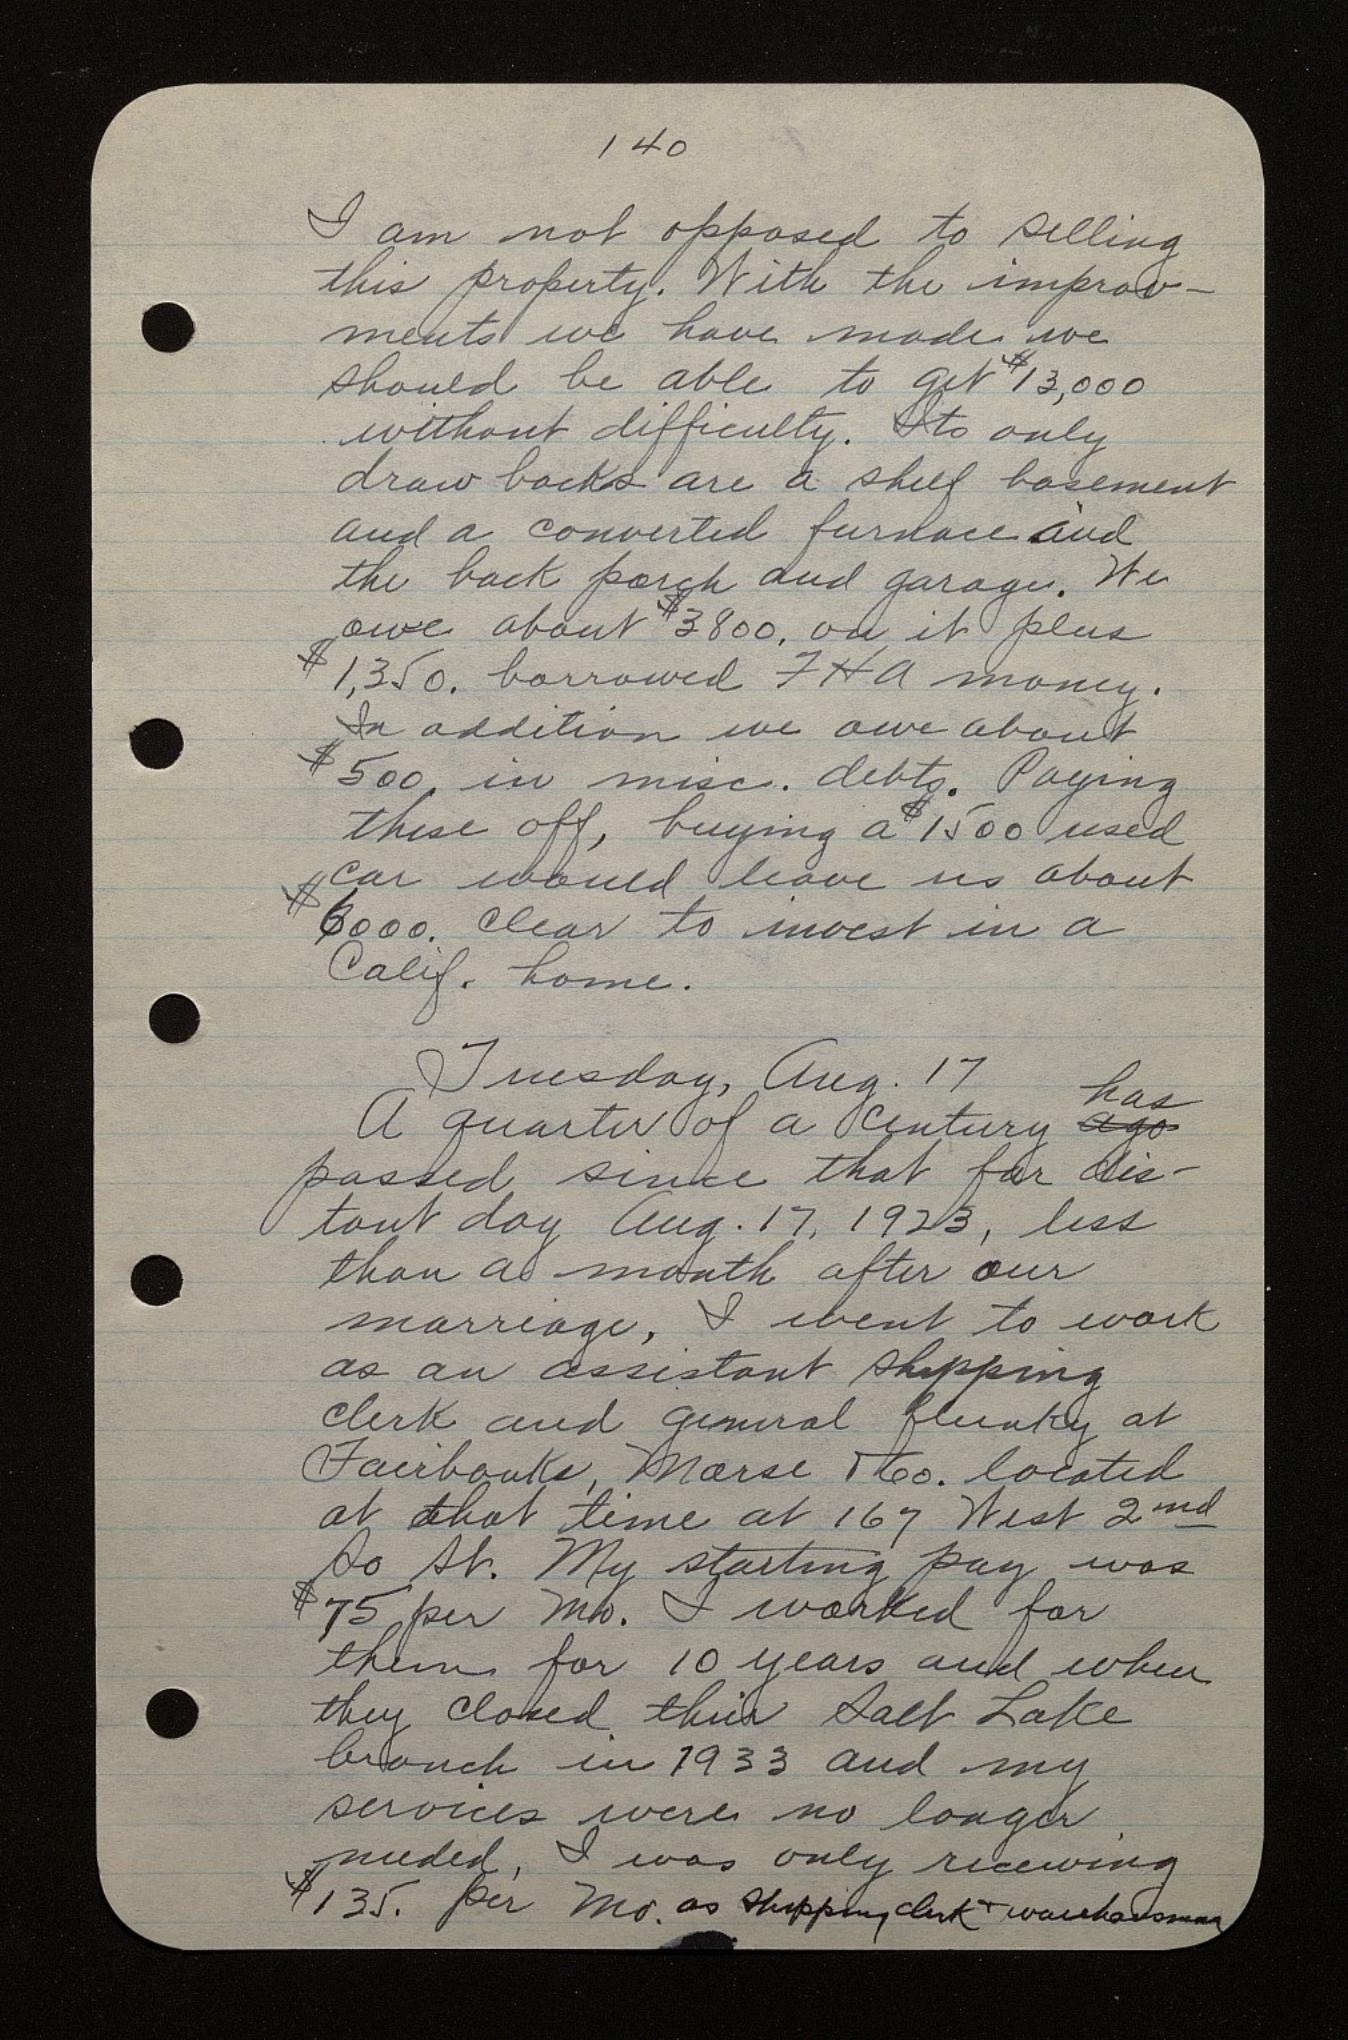 140
I am not opposed to selling
this property. With the improv-
ments we have made we
should be able to get $13,000
without difficulty. Its only
draw backs are a shelf basement
and a converted furnace and
the back porch and garage. We
owe about $3800. on it plus
$1,350. borrowed FHA money.
In addition we owe about
$500. in misc. debts. Paying
these off, buying a $1500 used
car would leave us about
$6000. clear to invest in a
Calif. home.
Tuesday, Aug. 17
A quarter of a century ago has
passed since that far dis-
tant day Aug. 17, 1923, less
than a month after our
marriage, I went to work
as an assistant shipping
clerk and general flunky at
Fairbanks, Morse & Co. located
at that time at 167 West 2nd
So St. My starting pay was
$75 per Mo. I worked for
them for 10 years and when
they closed their Salt Lake
branch in 1933 and my
services were no longer
needed, I was only receiving
$135. per Mo. as shipping clerk & warehouseman